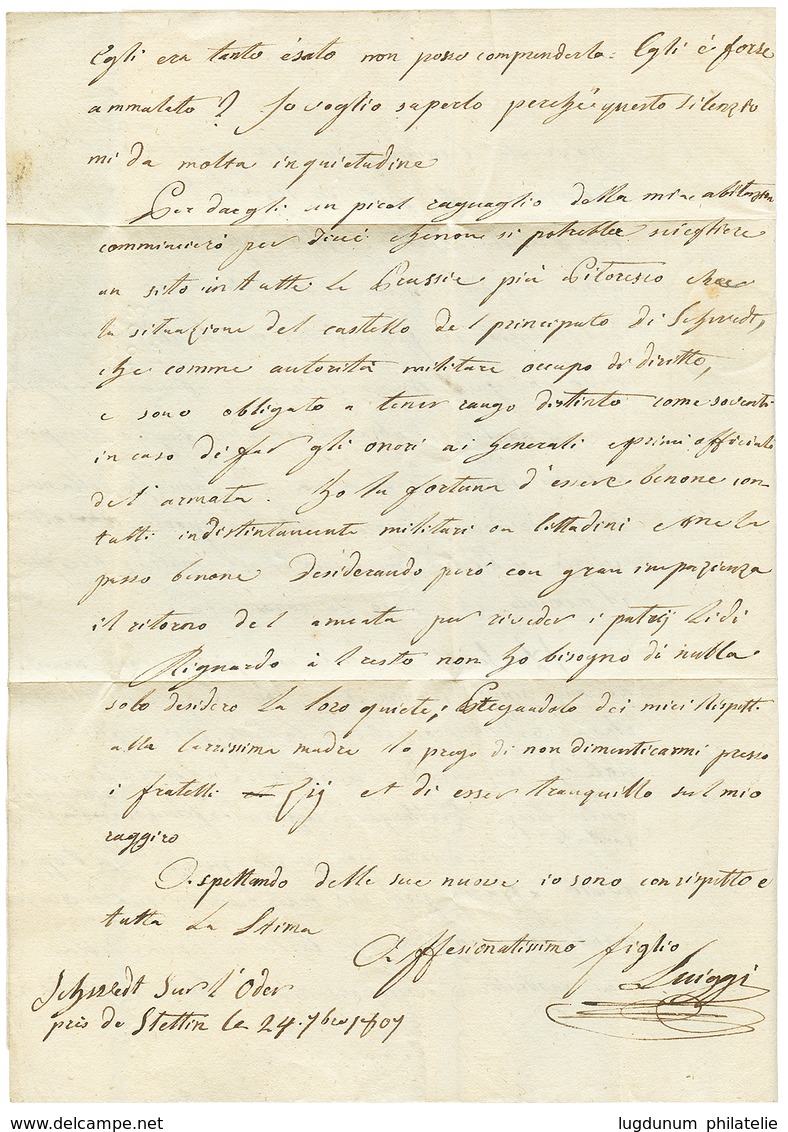 Egli era tanto ésato non posso comprenderlo: Egli é forse
ammalato? Io voglio saperlo perche questo silenzio
mi da molta inquietudine
Per dargli un picol raguaglio della mia abitazion
comminciero per dirci che non si potrebbe sciegliere
un sito in tutte le Prussie piu Pitoresco che
la situazione del castello del principato di Schwedt,
che comme autorità militare occupo di diritto,
e sono obligato a tener rango distinto come soventi
in caso di far gli onori ai Generali e primi officiali
del' armata. ho la fortuna d'essere benone con
tutti indistintamente militari ou Cittadini e me la
passo benone desiderando peró con gran impazienza
il ritorno del armata per riveder i patrij Lidi
Riguardo à l resto non ho bisogno di nulla
solo desidero la loro quiete; Pregandolo dei miei Rispetti
alla Carissima madre lo prego di non dimenticarmi presso
i fratelli Zij et di esser tranquillo sul mio
raggiro
Aspettando delle sue nuove io sono con rispetto e
tutta la Stima
Affesionatissimo figlio
Luiggi
Schwedt Sur l'Oder
près de Stettin le 24. 7bre 1807
www.delcampe.net
lugdunum philatelie